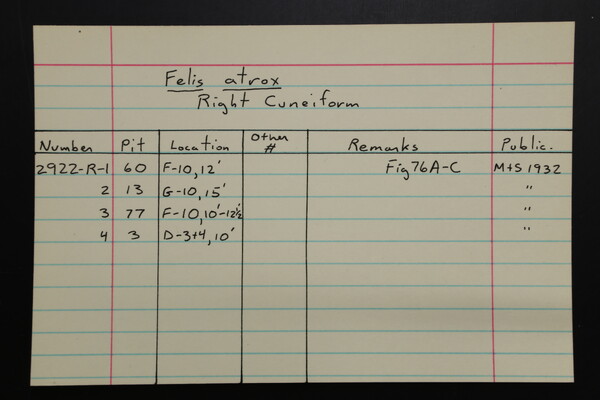 Felis atrox
Right Cuneiform
Number Pit Location Other # Remarks Public.
2922-R-1 60 F-10, 12' Fig 76A-C M+S 1932
2 13 G-10, 15' "
3 77 F-10, 10'-12½ "
4 3 D-3+4, 10' "